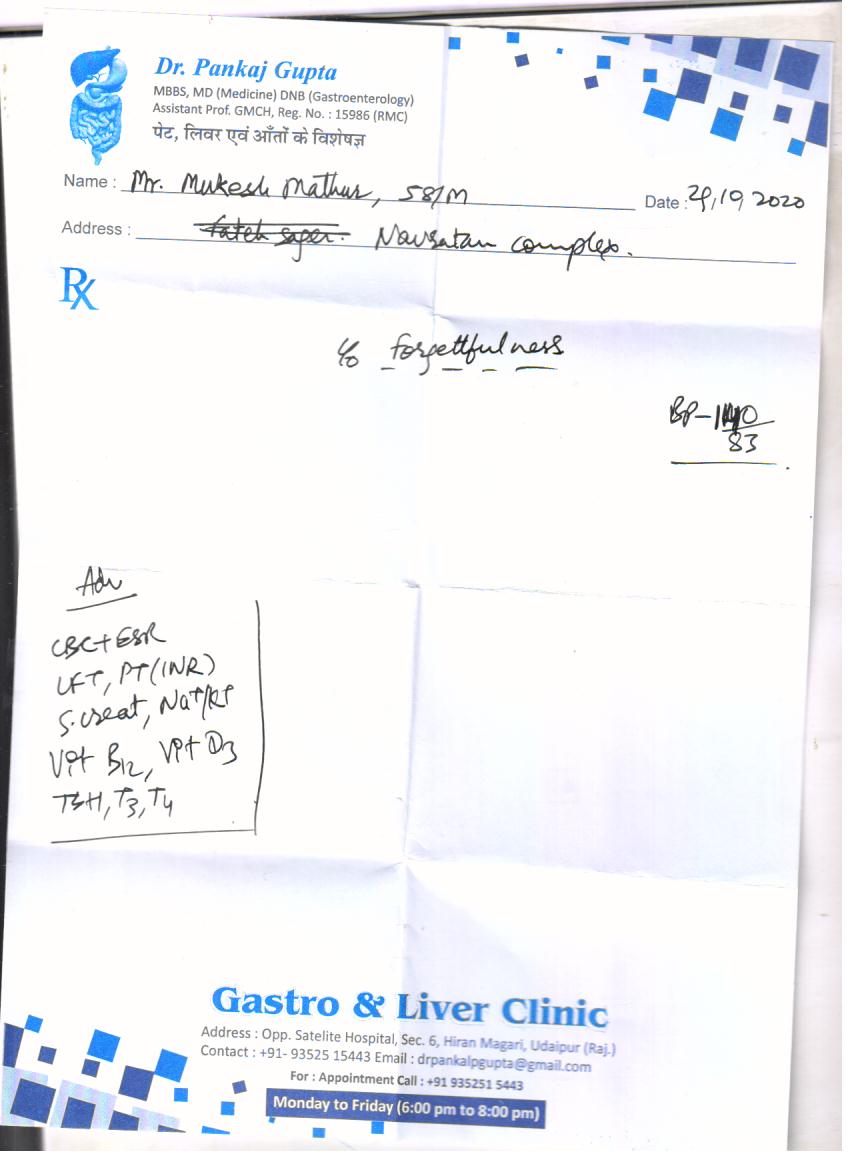 Dr. Pankaj Gupta
MBBS, MD (Medicine) DNB (Gastroenterology)
Assistant Prof. GMCH, Reg. No. : 15986 (RMC)
पेट, लिवर एवं आँतों के विशेषज्ञ
Name : Mr. Mukesh Mathur, 58/M Date : 2020
Address : Navratan complex.
Rx
c/o forgettfulness
BP-140/83
Adv
CBC+ESR
LFT, PT(INR)
S.creat, Na+/K+
Vit B12, Vit D3
TSH, T3, T4
Gastro & Liver Clinic
Address : Opp. Satelite Hospital, Sec. 6, Hiran Magari, Udaipur (Raj.)
Contact : +91- 93525 15443 Email : drpankalpgupta@gmail.com
For : Appointment Call : +91 935251 5443
Monday to Friday (6:00 pm to 8:00 pm)